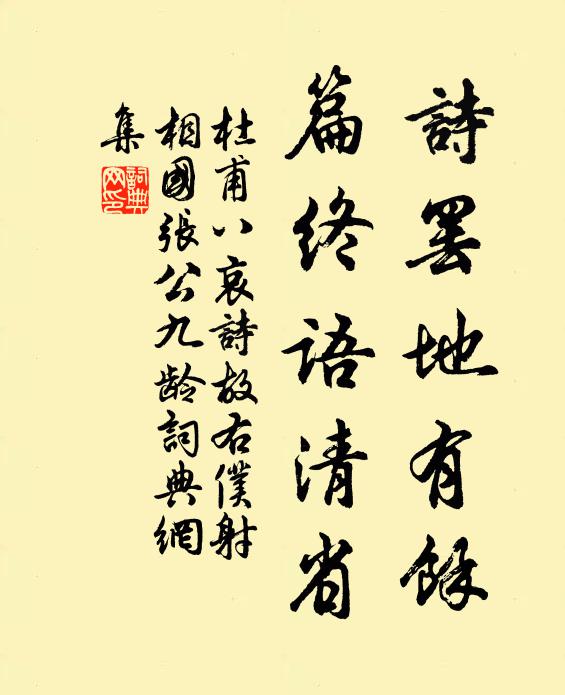 詩罷地有餘
篇終語清省
杜甫八哀詩故右僕射
相國張公九齡詞典網
集
詞典
網印